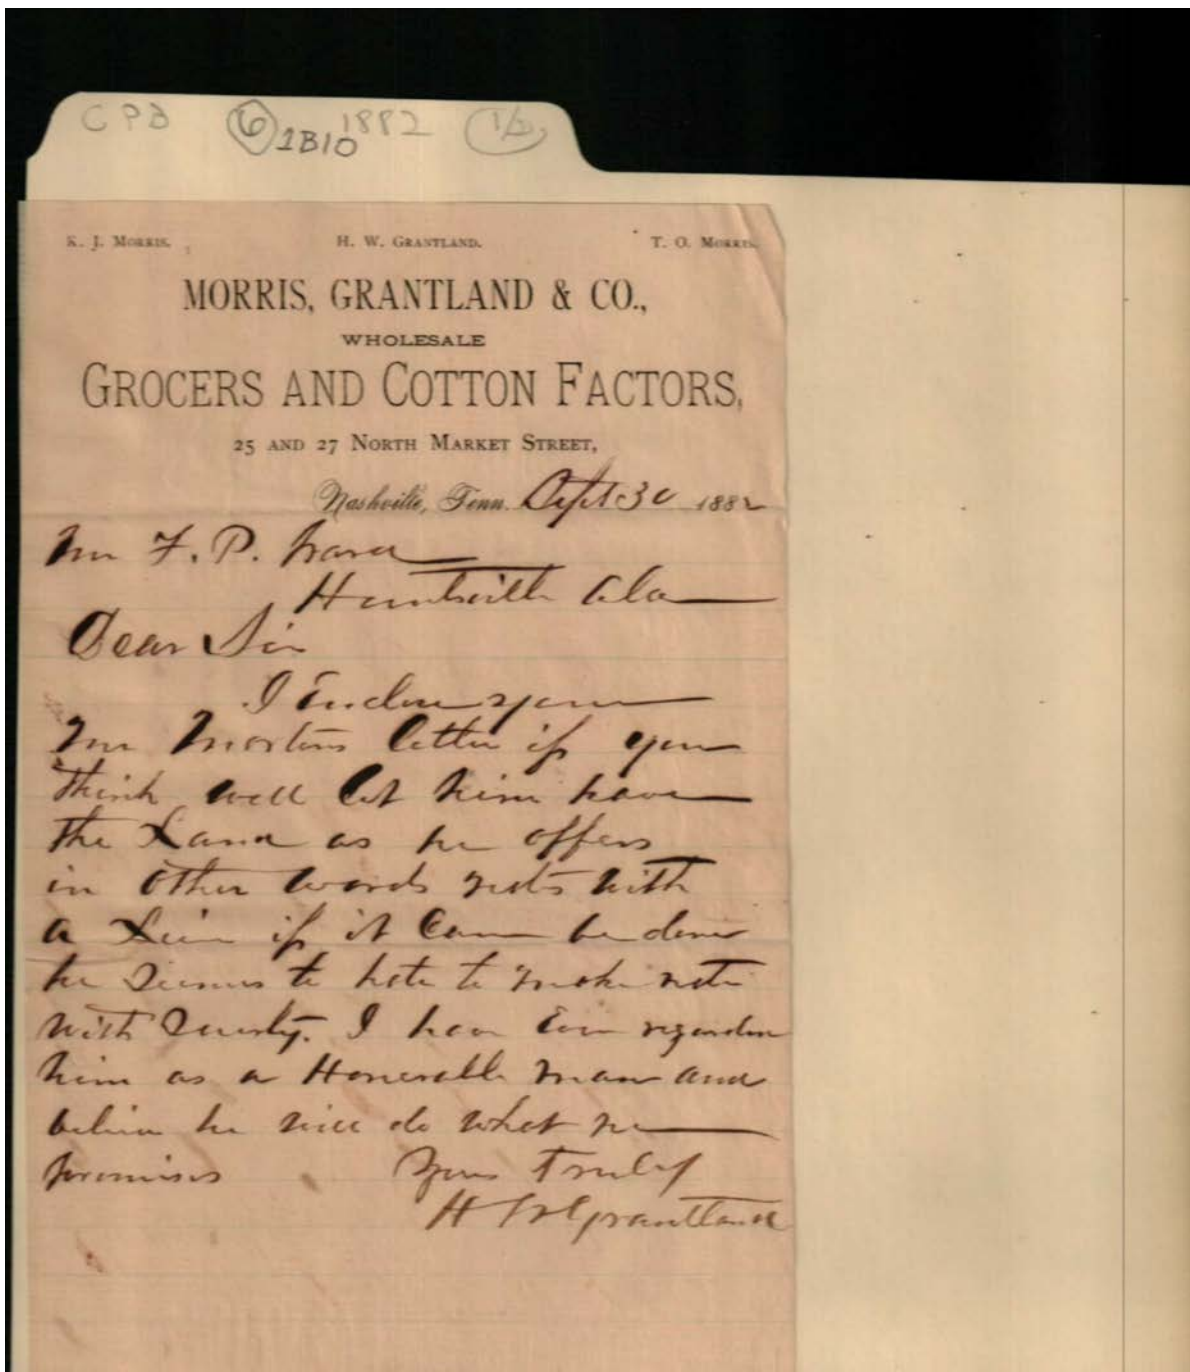 CPB 6 1B10 1882 1/2
K. J. MORRIS. H. W. GRANTLAND. T. O. MORRIS.
MORRIS, GRANTLAND & CO.,
WHOLESALE
GROCERS AND COTTON FACTORS,
25 AND 27 NORTH MARKET STREET,
Nashville, Tenn. Sept 30 1882
Mr F. P. Ward
Huntsville Ala
Dear Sir
I Enclose you
Mr Mortons letter if you
think well let him have
the Land as he offers
in other words note with
a Lien if it Can be done
he Seems to hate to make note
with Surety. I have Ever regarded
him as a Honerable man and
believe he will do what he
promises Yours Truly
H W Grantland